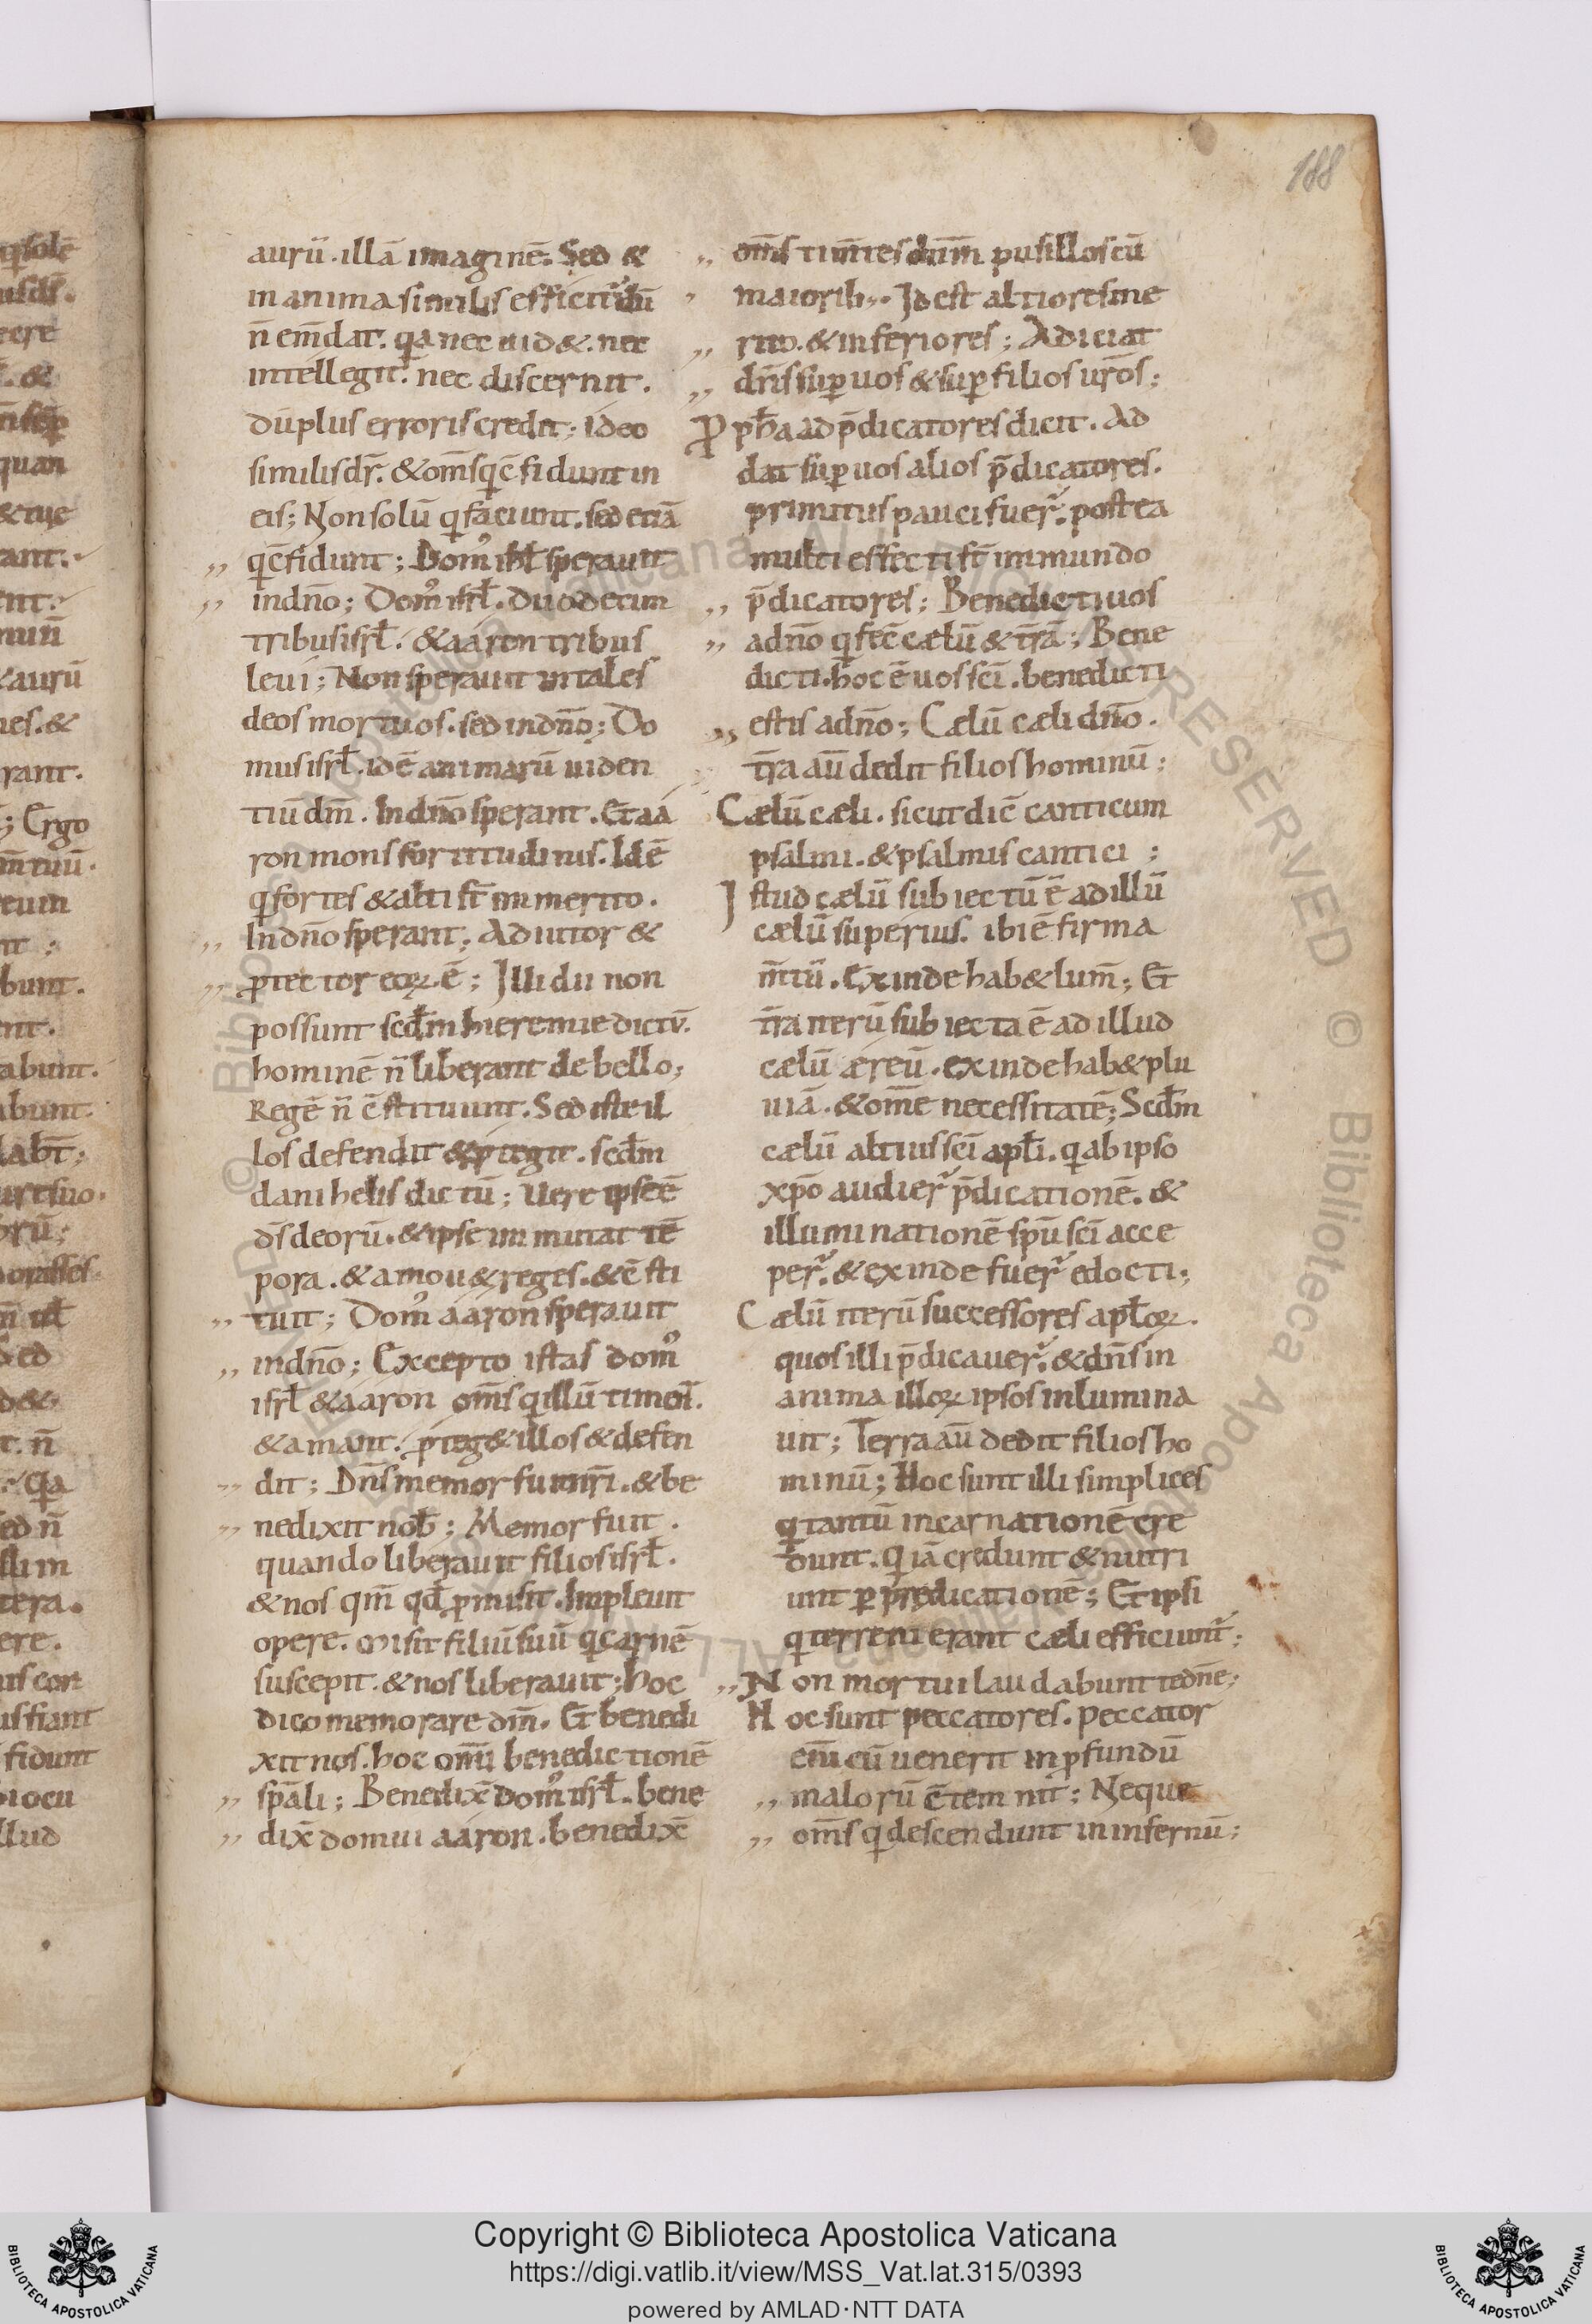 188
aurū. illā imaginē. Sed &
in anima similis efficit᷒ dū
n̄ em̄dat. qa nec uid&. nec
intellegit. nec discernit.
dū plus erroris credit; ideo
similis dr̄. & om̄s qi c̄fidunt in
eis; Non solū qi faciunt. sed etiā
„ qi c̄fidunt; Dom᷒ isrł sperauit
„ in dn̄o; Dom᷒ isrł. duodecim
tribus isrł. & aaron tribus
leui; Non sperauit in tales
deos mortuos. sed in dn̄o; Do
mus isrł. id ē animarū uiden
tiū dm̄. In dn̄o sperant. Et aa
ron mons fortitudinis. Id ē
qi fortes & alti st̄ in merito.
„ In dn̄o sperant; Adiutor &
„ ꝓtector eoꝝ ē; Illi dii non
possunt scđm hieremie dictū.
hominē n̄ liberant de bello;
Regē n̄ c̄stituunt. Sed iste il
los defendit & ꝓtegit. scđm
danihelis dictū; Uere ipse ē
ds̄ deorū. & ipse immutat tē
pora. & amou& reges. & c̄sti
„ tuit; Dom᷒ aaron sperauit
„ in dn̄o; Excepto istas dom᷒
isrł & aaron om̄s qi illū timent.
& amant. ꝓteg& illos & defen
„ dit; Dn̄s memor fuit nr̄i. & be
„ nedixit nob̄; Memor fuit.
quando liberauit filios isrł.
& nos qm̄ qđ ꝓmisit. Impleuit
opere. misit filiū suū qi carnē
suscepit. & nos liberauit; hoc
dico memorare dm̄. Et benedi
xit nos. hoc om̄i benedictionē
„ sp̄ali; Benedix̄ dom᷒ isrł. bene
„ dix̄ domui aaron. benedix̄
„ om̄s tim̄tes dn̄m pusillos cū
„ maiorib;. Id est altiores me
„ rito. & inferiores; Adiciat
„ dn̄s suꝑ uos & suꝑ filios ur̄os;
Pꝓħa ad p̄dicatores dicit. Ad
dat suꝑ uos alios p̄dicatores.
primitus pauci fuer᷒. postea
multi effecti st̄ in mundo
„ p̄dicatores; Benedicti uos
„ a dn̄o qi fec̄ cælū & tr̄ā; Bene
dicti. hoc ē uos sc̄i. benedicti
„ estis a dn̄o; Cælū cæli dn̄o.
tr̄a aū dedit filios hominū;
Cælū cæli. sicut dic̄ canticum
psalmi. & psalmis cantici;
Istud cælū subiectū ē ad illū
cælū superius. ibi ē firma
m̄tū. Exinde hab& lum̄; Et
tr̄a iterū subiecta ē ad illud
cælū æreū. exinde hab& plu
uiā. & om̄e necessitatē; Scđm
cælū altius sc̄i apłi. qi ab ipso
xp̄o audier᷒ p̄dicationē. &
illuminationē sp̄u sc̄i acce
per᷒. & exinde fuer᷒ edocti;
Cælū iterū successores apłoꝝ.
quos illi p̄dicauer᷒. & dn̄s in
anima illoꝝ ipsos inlumina
uit; Terra aū dedit filios ho
minū; Hoc sunt illi simplices
qi tantū incarnationē cre
dunt. Qi iā credunt & nutri
unt ꝑ predicationē; Et ipsi
qi terreni erant cæli efficiunt᷒;
„ Non mortui laudabunt te dn̄e;
Hoc sunt peccatores. peccator
em̄ cū uenerit in ꝓfundū
„ malorū c̄temnit; Neque
„ om̄s qi descendunt in infernū;
Copyright © Biblioteca Apostolica Vaticana
https://digi.vatlib.it/view/MSS_Vat.lat.315/0393
powered by AMLAD·NTT DATA
BIBLIOTECA APOSTOLICA VATICANA
BIBLIOTECA APOSTOLICA VATICANA